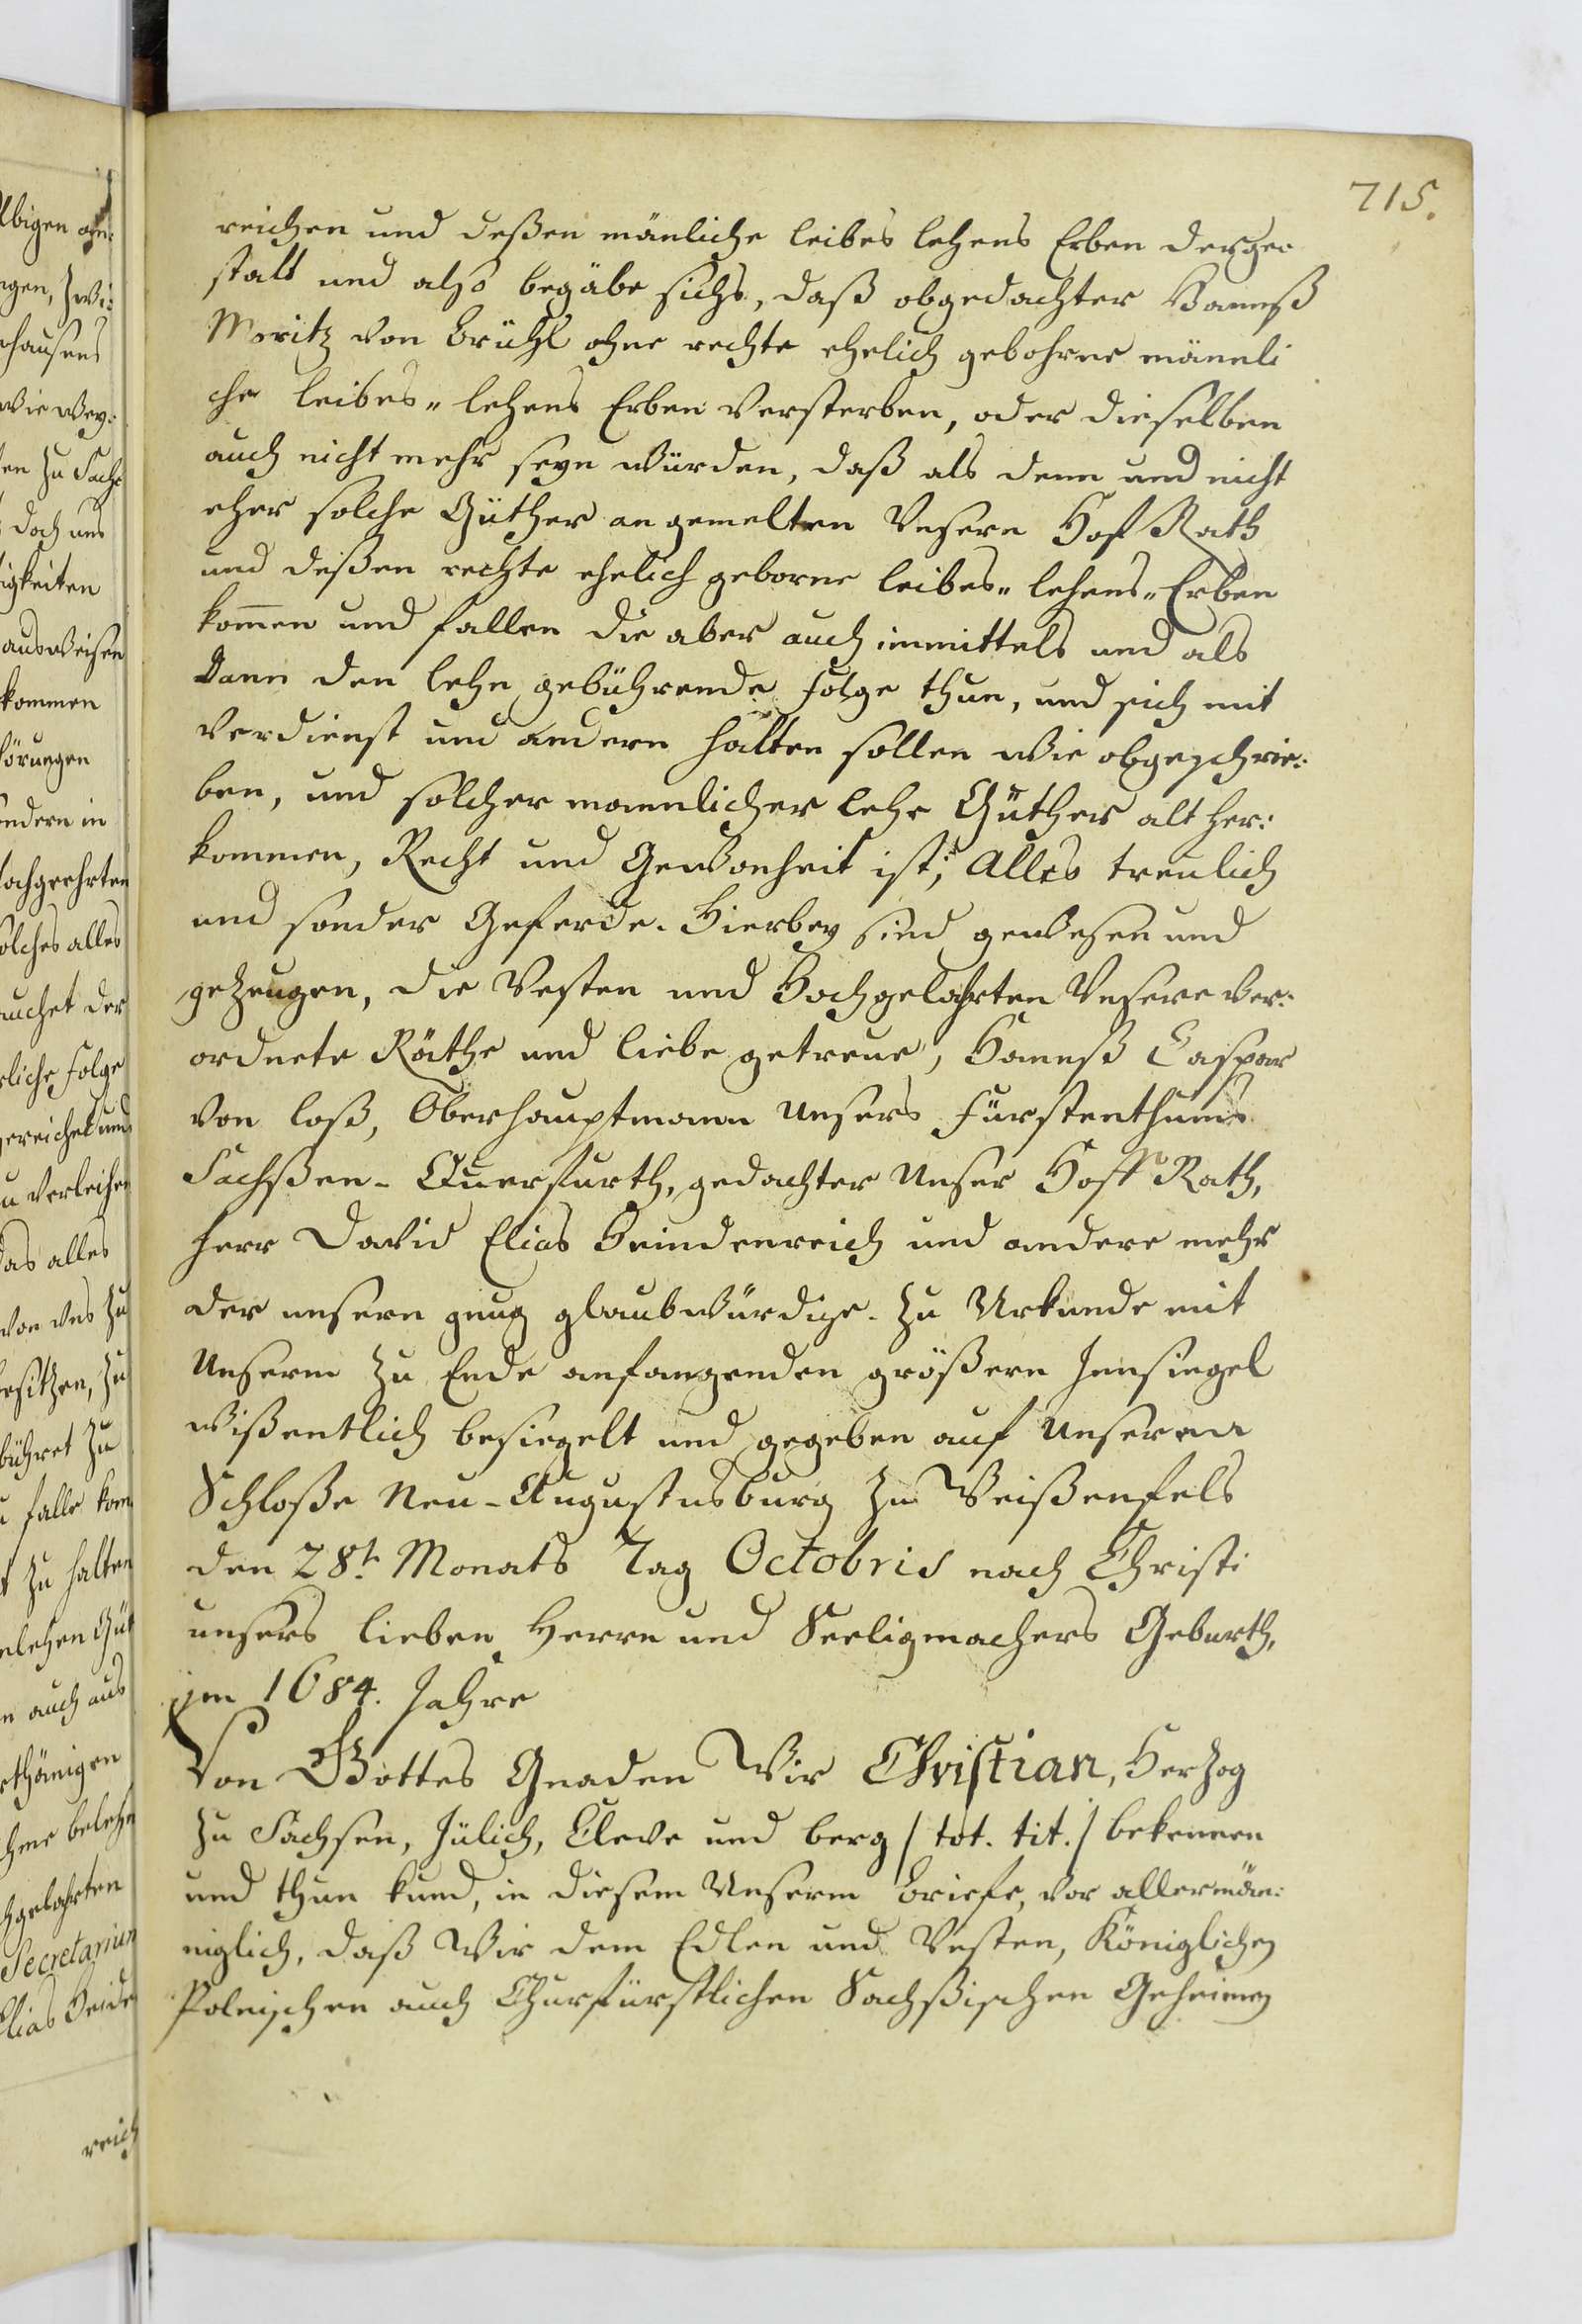 715.
reichen und deßen mänliche leibes lehens Erben derge-
stalt und also begäbe sichs, daß obgedachter Hannß
Moritz von Brühl ohne rechte ehelich gebohrne männli
che leibes„ lehens Erben versterben, oder dieselben
auch nicht mehr seyn würden, daß als denn und nicht
eher solche Güther an gemelten Unsern Hof Rath
und deßen rechte ehelich geborne leibes„ lehens„ Erben
kom̄en und fallen die aber auch immittels und als
dann den lehn gebührende folge thun, und sich mit
verdienst und andern halten sollen wie obgeschrie:
ben, und solcher mannlicher lehn Güther alt her:
kommen, Recht und Gewonheit ist; Alles treulich
und sonder Geferde. Hierbey sind gewesen und
gezeugen, die Vesten und Hochgelahrten Unsere ver:
ordnete Räthe und liebe getreue, Hannß Caspar
von loß, Oberhauptmann unsers fürstenthums
Sachßen- Querfurth, gedachter unser Hoff Rath,
herr David Elias Heindenreich und andere mehr
der unsern gnug glaubwürdige. Zu Urkunde mit
unserm zu Ende anfangenden größern Innsiegel
wißentlich besiegelt und gegeben auf unserm
Schloße Neu-Augustusburg zu Weißenfels
den 28t. Monats Tag Octobris nach Christi
unsers lieben Herrn und Seeligmachers Geburth,
im 1684. Jahre
Von Gottes Gnaden Wir Christian, Herzog
zu Sachsen, Jülich, Cleve und berg /tot. tit./ bekennen
und thun kund, in diesem unserm Briefe, vor allermän:
niglich, daß Wir dem Edlen und Vesten, Königlichen
Polnischen auch Churfürstlichen Sachßischen Geheimen